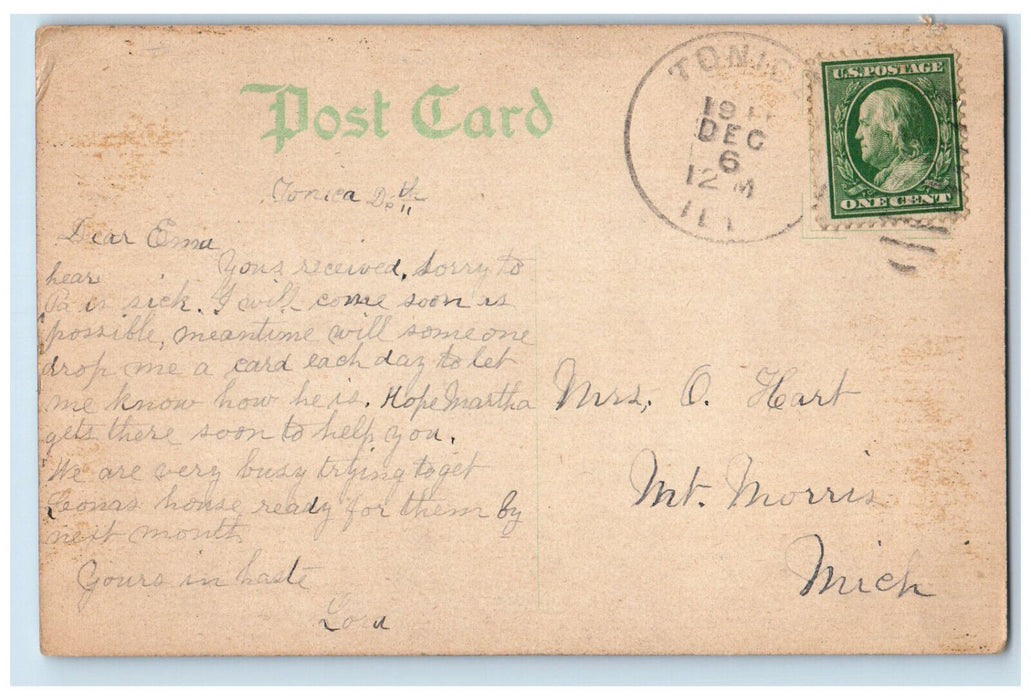 Post Card
TONICA
DEC
6
12 M
ILL
U.S. POSTAGE
ONE CENT
Tonica
Dear Emma
Yours received, sorry to
hear
Pa is sick. I will come soon as
possible, meantime will someone
drop me a card each day to let
me know how he is. Hope Martha
gets there soon to help you.
We are very busy trying to get
Leonas house ready for them by
next month
Yours in haste
Lora
Mrs. O. Hart
Mt. Morris
Mich